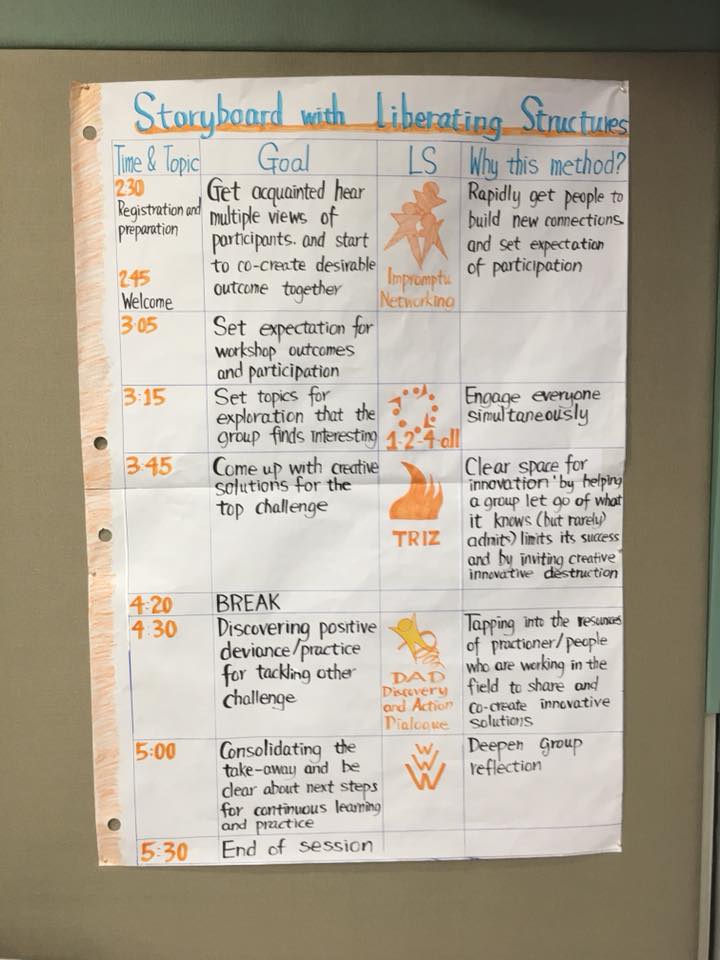 Storyboard with Liberating Structures
Time & Topic
Goal
LS
Why this method?
2:30
Registration and
preparation
2:45
Welcome
Get acquainted hear
multiple views of
participants. and start
to co-create desirable
outcome together
Impromptu
Networking
Rapidly get people to
build new connections
and set expectation
of participation
3:05
Set expectation for
workshop outcomes
and participation
3:15
Set topics for
exploration that the
group finds interesting
1-2-4-all
Engage everyone
simultaneously
3:45
Come up with creative
solutions for the
top challenge
TRIZ
Clear space for
innovation' by helping
a group let go of what
it knows (but rarely
admits) limits its success
and by inviting creative
innovative destruction
4:20
BREAK
4:30
Discovering positive
deviance/practice
for tackling other
challenge
DAD
Discovery
and Action
Dialogue
Tapping into the resources
of practioner/people
who are working in the
field to share and
co-create innovative
solutions
5:00
Consolidating the
take-away and be
clear about next steps
for continuous learning
and practice
W
W
W
Deepen group
reflection
5:30
End of session